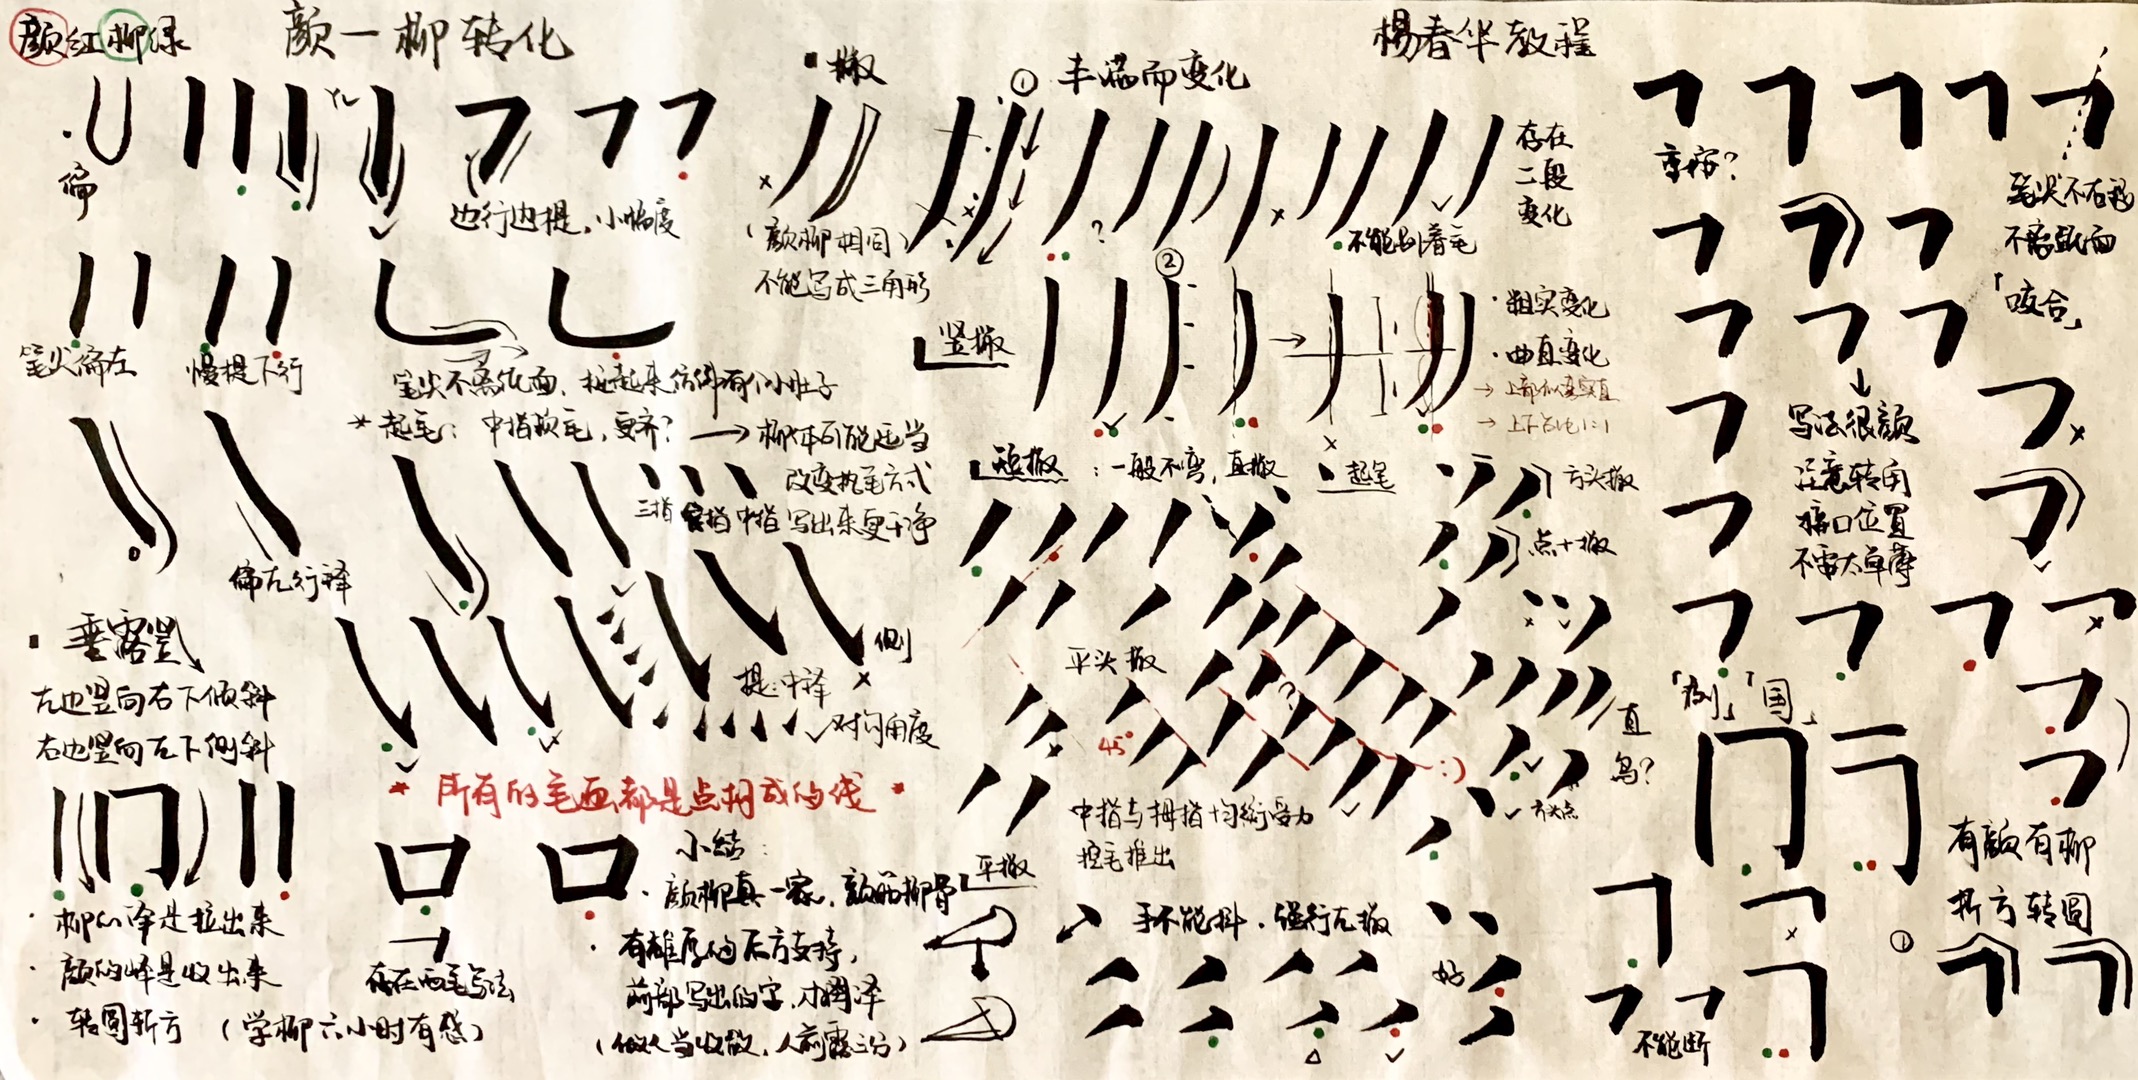 颜红柳绿
颜一柳转化
杨春华教程
偏
边行边提，小幅度
笔尖偏左
慢提下行
笔尖不离纸面，
* 起笔：中指顶毛，更齐？→柳体可能适当
改变执笔方式
三指 食指 中指 写出来更干净
偏左行译
■ 垂露竖
左边竖向右下倾斜
右边竖向左下倾斜
提:中译
侧 ×
√对勾角度
* 所有的笔画都是点构成的线 *
· 柳的译是拉出来
· 颜的峰是收出来
· 转圆折方 (学柳六小时有感)
存在两笔写法
小结：
· 颜柳真一家，颜筋柳骨
· 有雄厚的后方支持，
前部写出的字，才润泽
(做人当收敛，人前露三分)
■ 撇
(颜柳相同)
不能写成三角形
① 丰满而变化
存在
二段
变化
不能刮着毛
②
竖撇
· 粗实变化
· 曲直变化
→ 上下占比1:1
短撇：一般不弯，直撇
起笔
方头撇
点+撇
平头撇
45°
直
鸟?
方头点
中指与拇指均衡受力
控毛推出
平撇
手不能抖，强行左撇
好
笔尖不右移
不离纸面
「咬合」
写法很颜
注意转角
接口位置
不要太单薄
「国」
有颜有柳
折方转圆
①
不能断